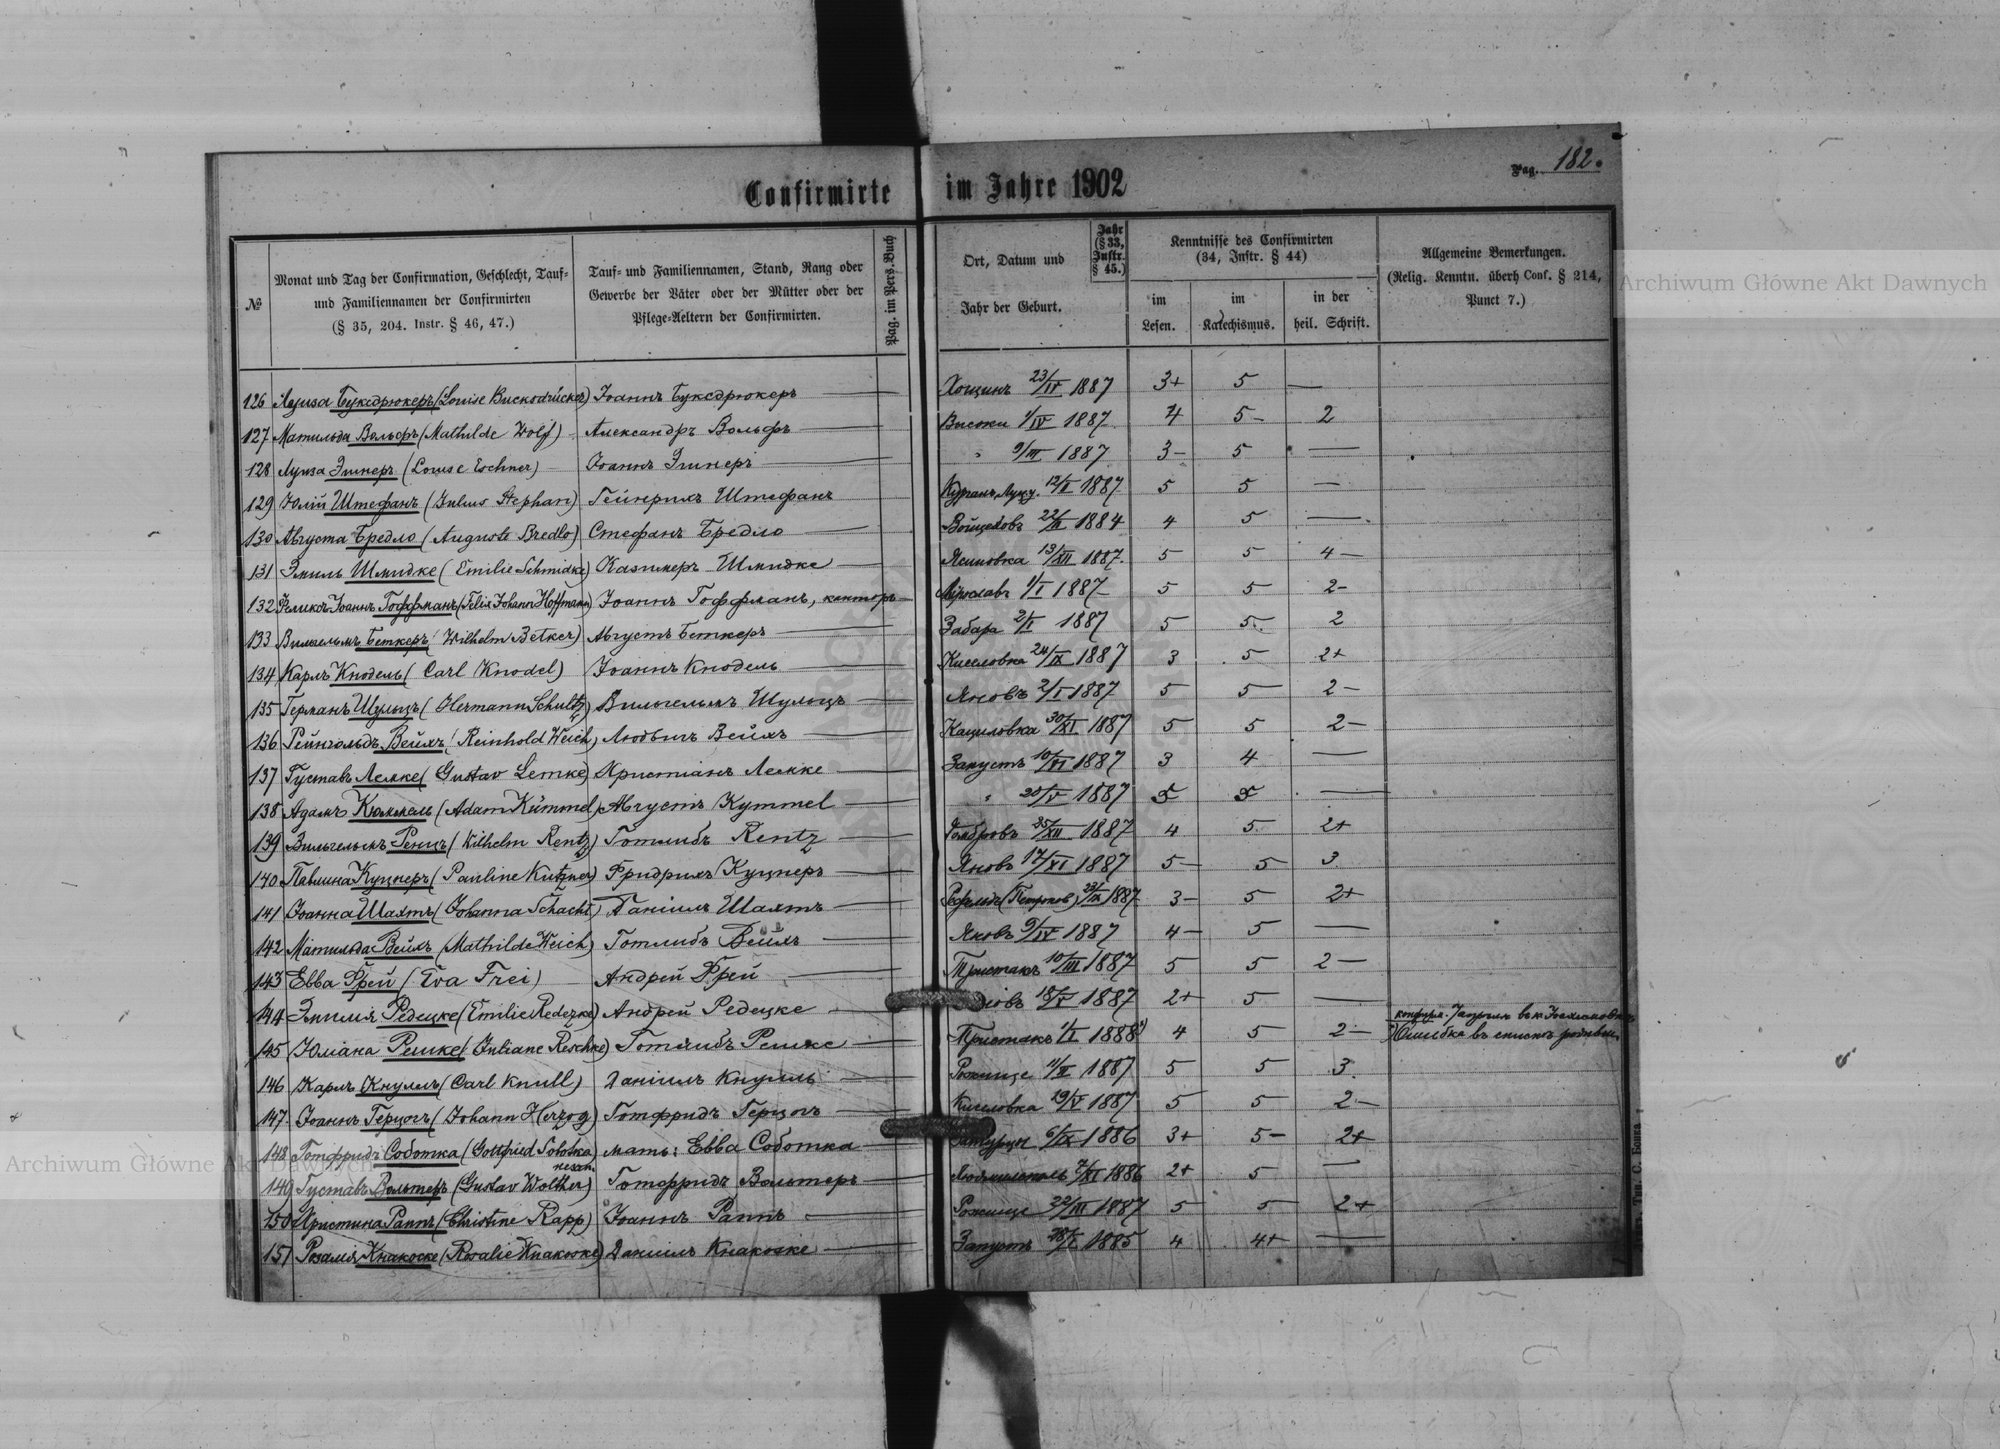 Confirmirte im Jahre 1902
Pag. 182.
№
Monat und Tag der Confirmation, Geschlecht, Tauf-
und Familiennamen der Confirmirten
(§ 35, 204. Instr. § 46, 47.)
Tauf- und Familiennamen, Stand, Rang oder
Gewerbe der Väter oder der Mütter oder der
Pflege-Aeltern der Confirmirten.
Pag. im Pers.-Buch
Ort, Datum und
Jahr der Geburt.
Jahr
(§ 33,
Instr.
§ 45.)
Kenntnisse des Confirmirten
(34, Instr. § 44)
im
Lesen.
im
Katechismus.
in der
heil. Schrift.
Allgemeine Bemerkungen.
(Relig. Kenntn. überh Conf. § 214,
Punct 7.)
126 Луиза Буксдрюкеръ (Louise ) Іоаннъ Буксдрюкеръ — Хощинъ 23/IV 1887 3+ 5 —
127 Матильда Вольфъ (Mathilde Wolf) Александръ Вольфъ — Високи 1/IV 1887 4 5- 2
128 Луиза Эшнеръ (Louise Eschner) Іоаннъ Эшнеръ — " 9/III 1887 3- 5 —
129 Юлій Штефанъ (Julius Stephan) Гейнрихъ Штефанъ 1887 5 5 —
130 Августа Бредло (Auguste Bredlo) Стефанъ Бредло — Войцеховъ 1884 4 5 —
131 Эмиль Шмидке (Emilie Schmidke) Казимеръ Шмидке — Ясиновка 13/XII 1887. 5 5 4-
132 Феликсъ-Іоаннъ Гоффманъ (Felix Johann Hoffmann) Іоаннъ Гоффманъ, канторъ — 1/I 1887 5 5 2-
133 Вильгельмъ Беткеръ (Wilhelm Betker) Августъ Беткеръ — Забара 2/I 1887 5 5 2
134 Карлъ Кнодель (Carl Knodel) Іоаннъ Кнодель — Киселовка 24/IX 1887 3 5 2+
135 Германъ Шульцъ (Hermann Schultz) Вильгельмъ Шульцъ — Яновъ 2/I 1887 5 5 2-
136 Рейнгольдъ Вейхъ (Reinhold Weich) Людвигъ Вейхъ — Кациловка 30/XI 1887 5 5 2-
137 Густавъ Лемке (Gustav Lemke) Христіанъ Лемке — Запустъ 10/VI 1887 3 4 —
138 Адамъ Кюммель (Adam Kümmel) Августъ Kymmel — " 20/V 1887 5 5 —
139 Вильгельмъ Ренцъ (Wilhelm Rentz) Готлибъ Rentz — Домбровъ 25/XII 1887 4 5 2+
140 Павлина Куцнеръ (Pauline Kutzner) Фридрихъ Куцнеръ — Яновъ 17/VI 1887 5- 5 3
141 Іоанна Шахтъ (Johanna Schacht) Даніилъ Шахтъ — 1887 3- 5 2+
142 Матильда Вейхъ (Mathilde Weich) Готлибъ Вейхъ — Яновъ 9/IV 1887 4- 5 —
143 Евва Фрей (Eva Frei) Андрей Фрей — Тристакъ 10/III 1887 5 5 2-
144 Эмилія Редецке (Emilie Redezke) Андрей Редецке — 18/V 1887 2+ 5 —
145 Юліана Решке (Juliane Reschke) Готлибъ Решке — Тристакъ 1/I 1888 4 5 2- Ошибка въ спискѣ
146 Карлъ Кнулль (Carl Knull) Даніилъ Кнулль — Рожище 1887 5 5 3.
147 Іоаннъ Герцогъ (Johann Herzog) Готфридъ Герцогъ — Киселовка 29/V 1887 5 5 2-
148 Готфридъ Соботка (Gottfried Sobotka) мать: Евва Соботка — 6/IX 1886 3+ 5- 2+
149 Густавъ Вольтеръ (Gustav Wolther) Готфридъ Вольтеръ — Людмилполь 7/XI 1886 2+ 5 —
150 Христина Раппъ (Christine Rapp) Іоаннъ Раппъ — Рожище 22/III 1887 5 5 2+
151 Розалія Кнакоске (Rosalie Knakoske) Даніилъ Кнакоске — Запустъ 1885 4 4+ —
Archiwum Główne Akt Dawnych
Archiwum Główne Akt Dawnych